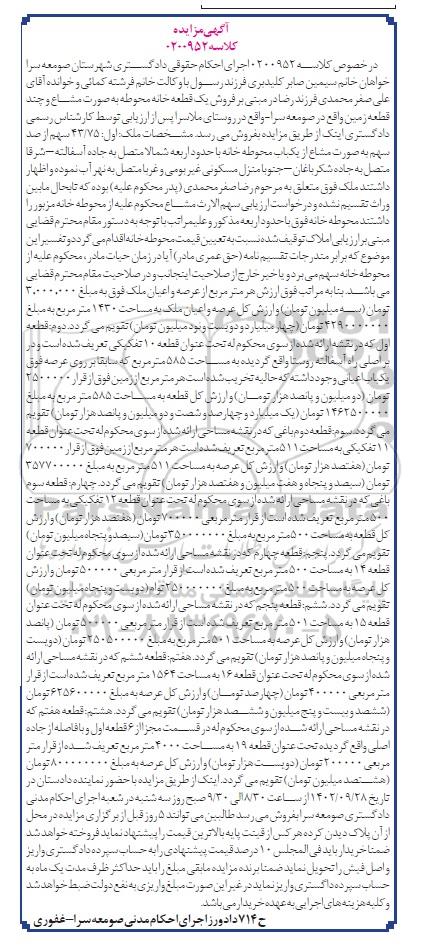 آگهی مزایده
کلاسه ۰۲۰۰۹۵۲
در خصوص کلاسه ۰۲۰۰۹۵۲ اجرای احکام حقوقی دادگستری شهرستان صومعه سرا
خواهان خانم سیمین صابر کلیدبری فرزند رسول با وکالت خانم فرشته کمائی و خوانده آقای
علی صفر محمدی فرزند رضا در مبنی بر فروش یک قطعه خانه محوطه به صورت مشاع و چند
قطعه زمین واقع در صومعه سرا-واقع در روستای ملاسرا پس از ارزیابی توسط کارشناس رسمی
دادگستری اینک از طریق مزایده بفروش می رسد. مشخصات ملک: اول: ۴۳/۷۵ سهم از صد
سهم به صورت مشاع از یکباب محوطه خانه با حدود اربعه شمالا متصل به جاده آسفالته-شرقا
متصل به جاده شکر باغان-جنوبا منزل مسکونی غیر بومی و غربا متصل به نهر آب نموده و اظهار
داشتند ملک فوق متعلق به مرحوم رضا صفر محمدی (پدر محکوم علیه) بوده که تابحال مابین
وراث تقسیم نشده و درخواست ارزیابی سهم الارث مشاع محکوم علیه از محوطه خانه مزبور را
داشتند محوطه خانه فوق با حدود اربعه مذکور و علیمراتب با توجه به دستور مقام محترم قضایی
مبنی بر ارزیابی املاک توقیف شده نسبت به تعیین قیمت محوطه خانه اقدام می گردد و تفسیر این
موضوع که برابر مندرجات تقسیم نامه (حق عمری مادر) آیا در زمان حیات مادر، محکوم علیه از
محوطه خانه سهم می برد و یا خیر خارج از صلاحیت اینجانب و در صلاحیت مقام محترم قضایی
می باشد. بنا به مراتب فوق ارزش هر متر مربع از عرصه و اعیان ملک فوق به مبلغ ۳,۰۰۰,۰۰۰
تومان (سه میلیون تومان) و ارزش کل عرصه و اعیان ملک به مساحت ۱۴۳۰ متر مربع به مبلغ
۴۲۹۰۰۰۰۰۰۰ تومان (چهار میلیارد و دویست و نود میلیون تومان) تقویم می گردد. دوم: قطعه
اول که در نقشه ارائه شده از سوی محکوم له تحت عنوان قطعه ۱۰ تفکیکی تعریف شده است و در
بر اصلی راه آسفالته روستا واقع گردیده به مساحت ۵۸۵ متر مربع که سابقا بر روی عرصه فوق
یکباب اعیانی وجود داشته که حالیه تخریب شده است هر متر مربع از زمین فوق از قرار ۲۵۰۰۰۰۰
تومان (دو میلیون و پانصد هزار تومان) و ارزش کل قطعه به مساحت ۵۸۵ متر مربع به مبلغ
۱۴۶۲۵۰۰۰۰۰ تومان (یک میلیارد و چهارصد و شصت و دو میلیون و پانصد هزار تومان) تقویم
می گردد. سوم: قطعه دوم باغی که در نقشه مساحی ارائه شده از سوی محکوم له تحت عنوان قطعه
۱۱ تفکیکی به مساحت ۵۱۱ متر مربع تعریف شده است هر متر مربع از زمین فوق از قرار ۷۰۰۰۰۰
تومان (هفتصد هزار تومان) و ارزش کل عرصه به مساحت ۵۱۱ متر مربع به مبلغ ۳۵۷۷۰۰۰۰۰
تومان (سیصد و پنجاه و هفت میلیون و هفتصد هزار تومان) تقویم می گردد. چهارم: قطعه سوم
باغی که در نقشه مساحی ارائه شده از سوی محکوم له تحت عنوان قطعه ۱۲ تفکیکی به مساحت
۵۰۰ متر مربع تعریف شده است از قرار متر مربعی ۷۰۰۰۰۰ تومان (هفتصد هزار تومان) و ارزش
کل قطعه به مساحت ۵۰۰ متر مربع به مبلغ ۳۵۰۰۰۰۰۰۰ تومان (سیصد و پنجاه میلیون تومان)
تقویم می گردد. پنجم: قطعه چهارم که در نقشه مساحی ارائه شده از سوی محکوم له تحت عنوان
قطعه ۱۴ به مساحت ۵۰۰ متر مربع تعریف شده است از قرار متر مربعی ۵۰۰۰۰۰ تومان و ارزش
کل عرصه به مساحت ۵۰۰ متر مربع به مبلغ ۲۵۰۰۰۰۰۰۰ توام (دویست و پنجاه میلیون تومان)
تقویم می گردد. ششم: قطعه پنجم که در نقشه مساحی ارائه شده از سوی محکوم له تحت عنوان
قطعه ۱۵ به مساحت ۵۰۱ متر مربع تعریف شده است از قرار متر مربعی ۵۰۰۰۰۰ تومان (پانصد
هزار تومان) و ارزش کل عرصه به مساحت ۵۰۱ متر مربع به مبلغ ۲۵۰۵۰۰۰۰۰ تومان (دویست
و پنجاه میلیون و پانصد هزار تومان) تقویم می گردد. هفتم: قطعه ششم که در نقشه مساحی ارائه
شده از سوی محکوم له تحت عنوان قطعه ۱۶ به مساحت ۱۵۶۴ متر مربع تعریف شده است از قرار
متر مربعی ۴۰۰۰۰۰ تومان (چهارصد تومان) و ارزش کل عرصه به مبلغ ۶۲۵۶۰۰۰۰۰ تومان
(ششصد و بیست و پنج میلیون و ششصد هزار تومان) تقویم می گردد. هشتم: قطعه هفتم که
در نقشه مساحی ارائه شده از سوی محکوم له در قسمت مجزا از ۶ قطعه اول و با فاصله از جاده
اصلی واقع گردیده تحت عنوان قطعه ۱۹ به مساحت ۴۰۰۰ متر مربع تعریف شده از قرار متر
مربعی ۲۰۰۰۰۰ تومان (دویست هزار تومان) و ارزش کل عرصه به مبلغ ۸۰۰۰۰۰۰۰۰ تومان
(هشتصد میلیون تومان) تقویم می گردد. اینک از طریق مزایده با حضور نماینده دادستان در
تاریخ ۱۴۰۲/۰۹/۲۸ از ساعت ۸/۳۰ الی ۹/۳۰ صبح روز سه شنبه در شعبه اجرای احکام مدنی
دادگستری صومعه سرا بفروش می رسد طالبین می توانند ۵ روز قبل از برگزاری مزایده در محل
از آن پلاک دیدن کرده هر کس از قیمت پایه بالاترین قیمت را پیشنهاد نماید فروخته خواهد شد
ضمنا خریدار باید فی المجلس ۱۰ درصد قیمت پیشنهادی را به حساب سپرده دادگستری واریز
و اصل فیش را تحویل نماید ضمنا برنده مزایده مابقی مبلغ را باید حداکثر ظرف مدت یک ماه به
حساب سپرده دادگستری واریز نماید در غیر این صورت مبلغ واریزی به نفع دولت ضبط خواهد شد
و کلیه هزینه های اجرایی به عهده خریدار می باشد.
ح ۷۱۴ دادورز اجرای احکام مدنی صومعه سرا-غفوری